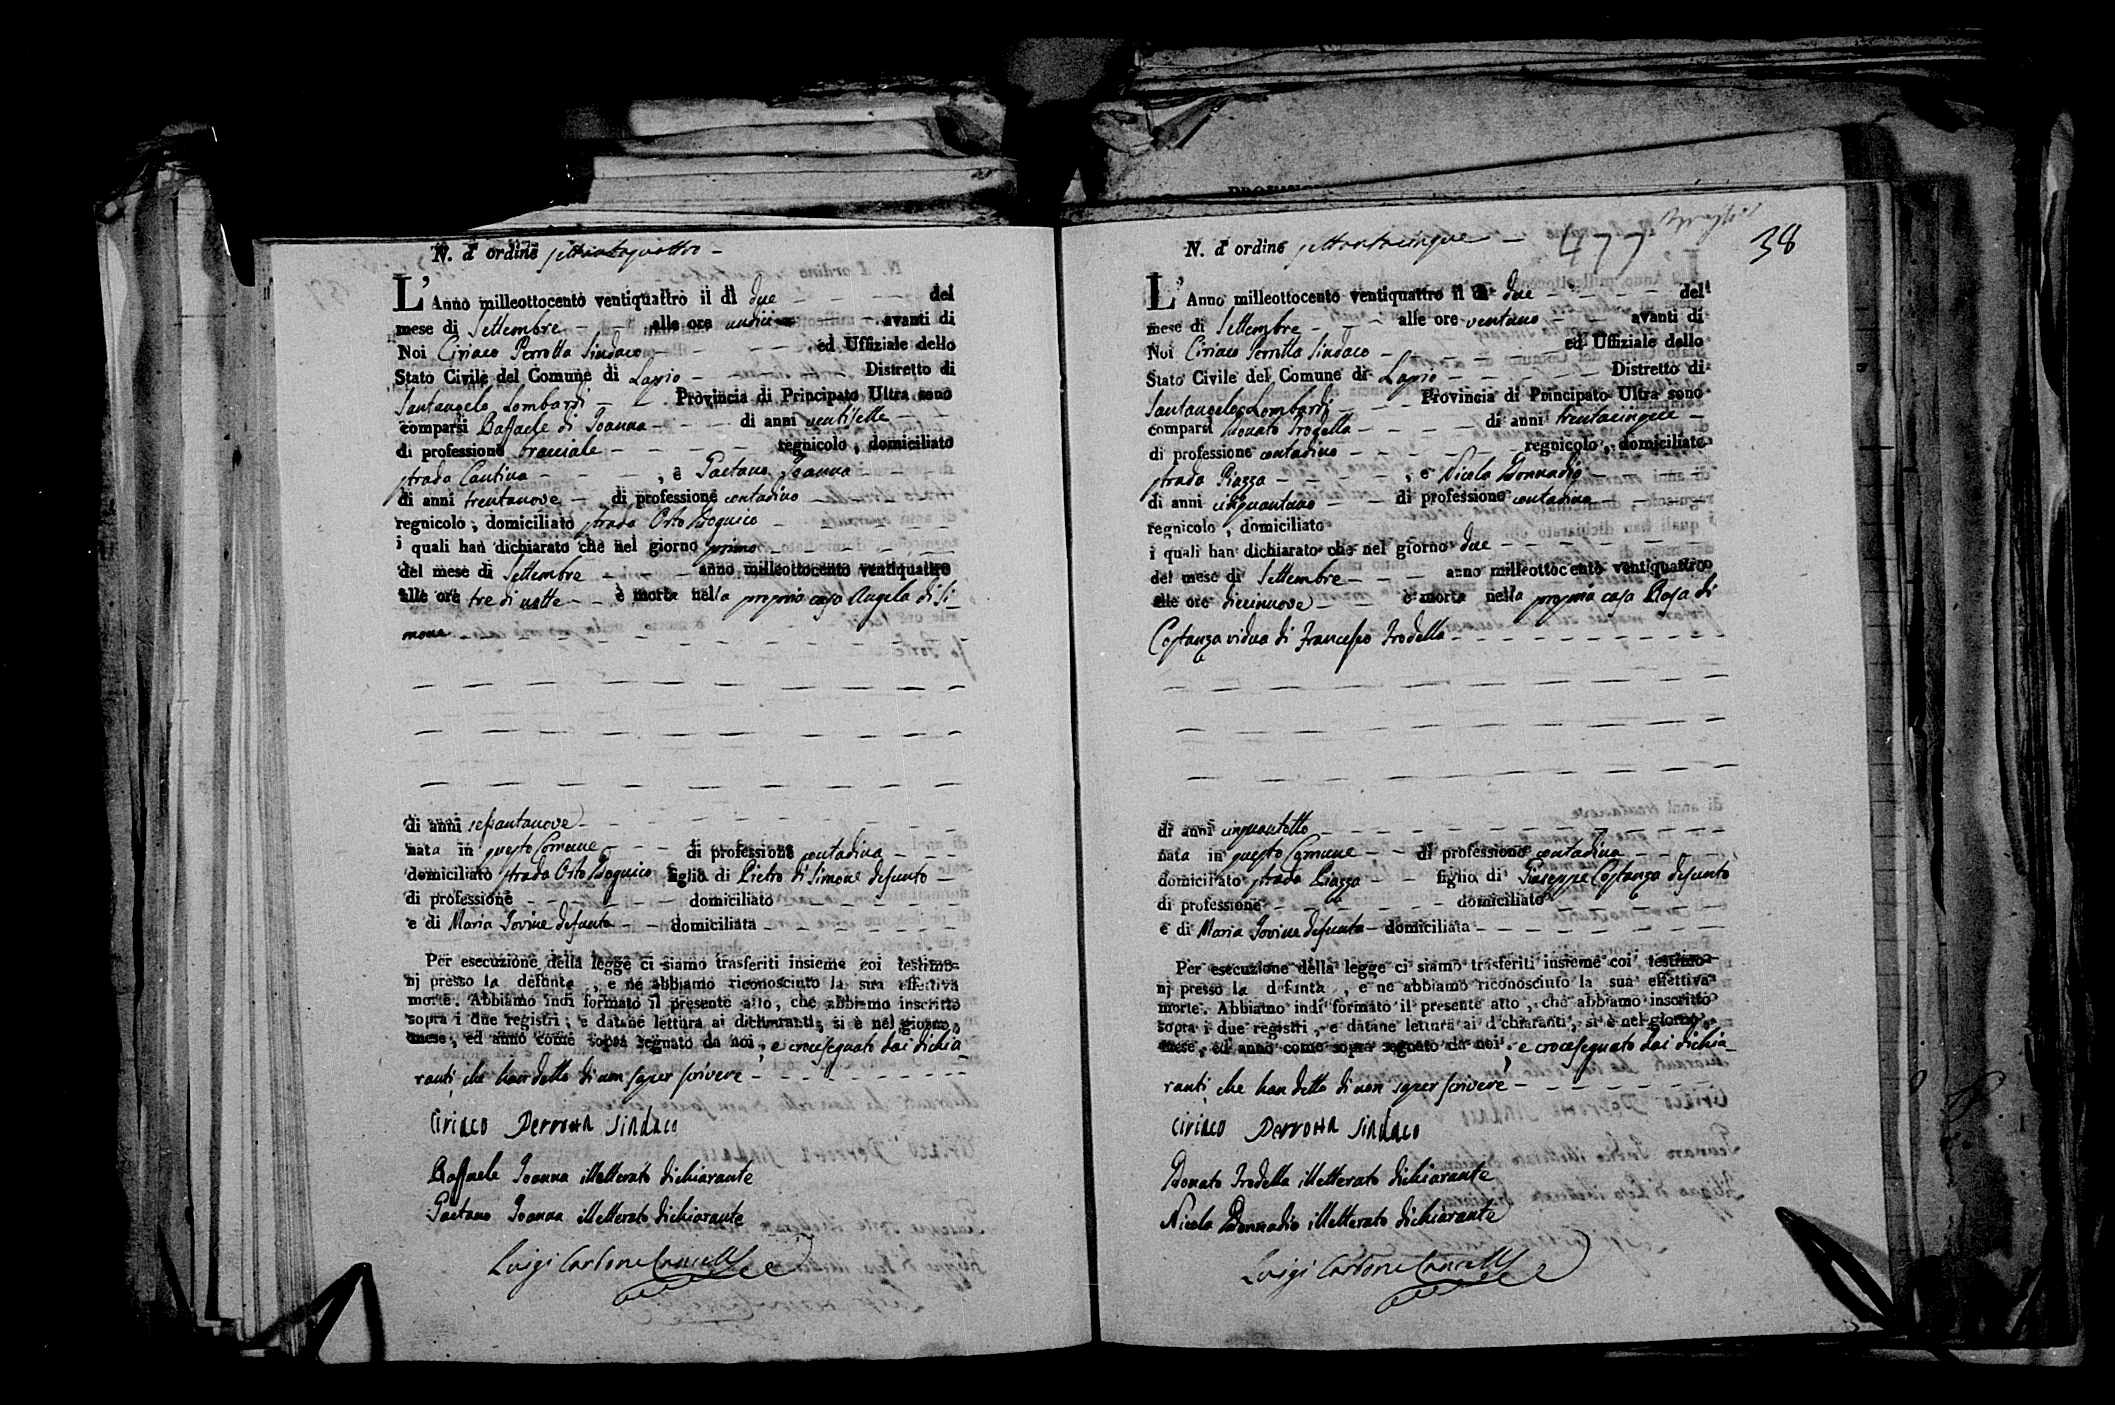 N. d' ordine settantaquattro
L' Anno milleottocento ventiquattro il dì due del
mese di Settembre alle ore undici avanti di
Noi Ciriaco Perrotta Sindaco ed Uffiziale dello
Stato Civile del Comune di Lapio Distretto di
Santangelo Lombardi Provincia di Principato Ultra sono
comparsi Raffaele di Joanna di anni ventisette
di professione bracciale regnicolo, domiciliato
strada Cantina, e Gaetano Joanna
di anni trentanove di professione contadino
regnicolo, domiciliato strada Orto
i quali han dichiarato che nel giorno primo
del mese di Settembre anno milleottocento ventiquattro
alle ore tre di notte è morta nella propria casa Angela di Si-
mone
di anni sessantanove
nata in questo Comune di professione contadina
domiciliato strada Orto figlia di Pietro di Simone defunto
di professione domiciliato
e di Maria Iovine defunta domiciliata
Per esecuzione della legge ci siamo trasferiti insieme coi testimo-
nj presso la defunta, e ne abbiamo riconosciuto la sua effettiva
morte. Abbiamo indi formato il presente atto, che abbiamo inscritto
sopra i due registri, e datane lettura ai dichiaranti, si è nel giorno,
mese, ed anno come sopra segnato da noi, e crocesegnato dai dichia-
ranti, che han detto di non saper scrivere
Ciriaco Perrotta Sindaco
Raffaele Joanna illetterato dichiarante
Gaetano Joanna illetterato dichiarante
Luigi Carbone Cancell
N. d' ordine settantacinque 477 38
L' Anno milleottocento ventiquattro il dì due del
mese di Settembre alle ore ventuno avanti di
Noi Ciriaco Perrotta Sindaco ed Uffiziale dello
Stato Civile del Comune di Lapio Distretto di
Santangelo Lombardi Provincia di Principato Ultra sono
comparsi Donato Trodella di anni trentacinque
di professione contadino regnicolo, domiciliato
strada Piazza, e Nicola Bonnadio
di anni cinquantuno di professione contadino
regnicolo, domiciliato
i quali han dichiarato che nel giorno due
del mese di Settembre anno milleottocento ventiquattro
alle ore diecinnove è morta nella propria casa Rosa di
Costanza vidua di Francesco Trodella
di anni cinquantotto
nata in questo Comune di professione contadina
domiciliato strada Piazza figlia di Giuseppe Costanza defunto
di professione domiciliato
e di Maria Iovine defunta domiciliata
Per esecuzione della legge ci siamo trasferiti insieme coi testimo-
nj presso la defunta, e ne abbiamo riconosciuto la sua effettiva
morte. Abbiamo indi formato il presente atto, che abbiamo inscritto
sopra i due registri, e datane lettura ai dichiaranti, si è nel giorno,
mese, ed anno come sopra segnato da noi, e crocesegnato dai dichia-
ranti, che han detto di non saper scrivere
Ciriaco Perrotta Sindaco
Donato Trodella illetterato dichiarante
Nicola Bonnadio illetterato dichiarante
Luigi Carbone Cancell